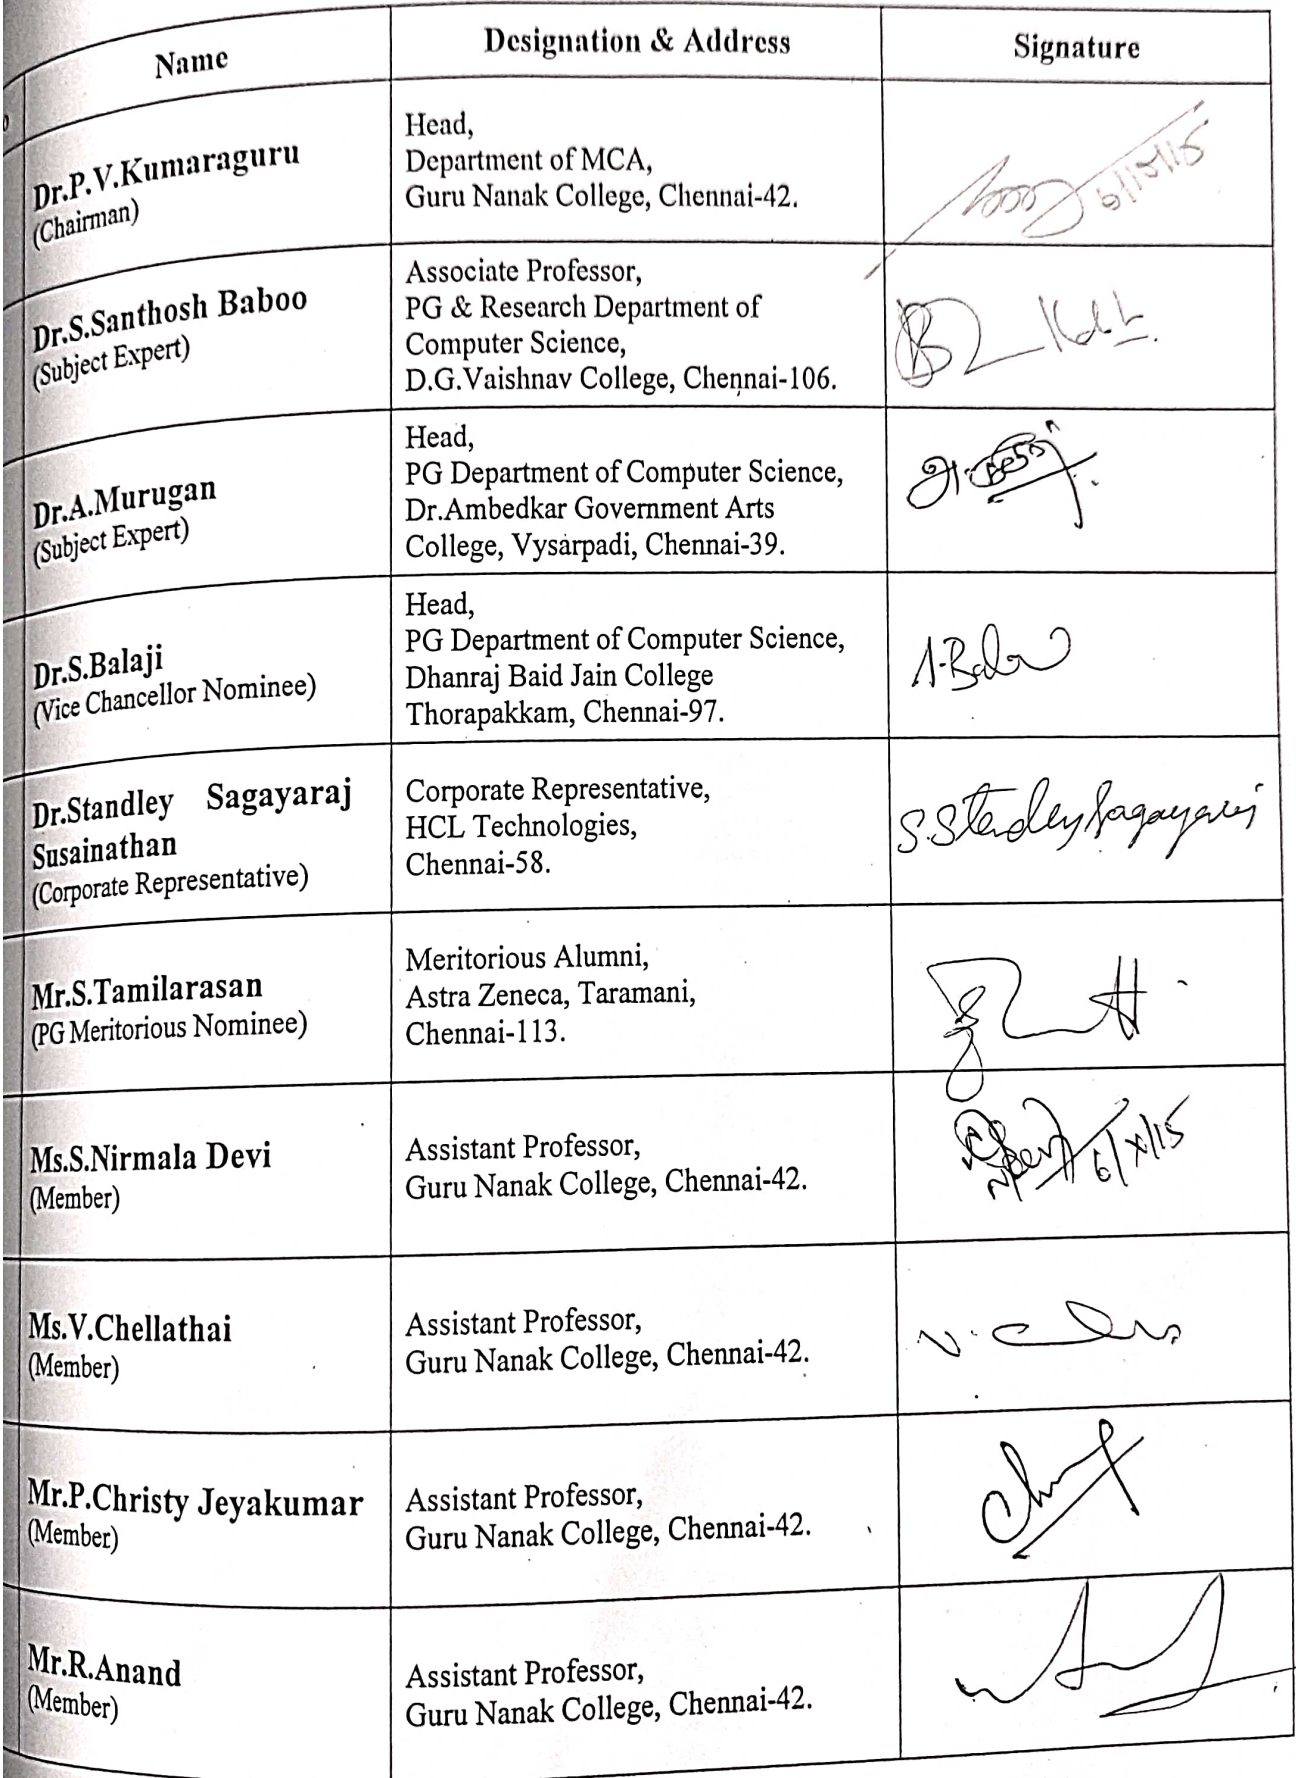 Name Designation & Address Signature
Dr.P.V.Kumaraguru
(Chairman)
Head,
Department of MCA,
Guru Nanak College, Chennai-42.
Dr.S.Santhosh Baboo
(Subject Expert)
Associate Professor,
PG & Research Department of
Computer Science,
D.G.Vaishnav College, Chennai-106.
Dr.A.Murugan
(Subject Expert)
Head,
PG Department of Computer Science,
Dr.Ambedkar Government Arts
College, Vysarpadi, Chennai-39.
Dr.S.Balaji
(Vice Chancellor Nominee)
Head,
PG Department of Computer Science,
Dhanraj Baid Jain College
Thorapakkam, Chennai-97.
Dr.Standley Sagayaraj
Susainathan
(Corporate Representative)
Corporate Representative,
HCL Technologies,
Chennai-58.
S.Standley Sagayaraj
Mr.S.Tamilarasan
(PG Meritorious Nominee)
Meritorious Alumni,
Astra Zeneca, Taramani,
Chennai-113.
Ms.S.Nirmala Devi
(Member)
Assistant Professor,
Guru Nanak College, Chennai-42.
6/X/15
Ms.V.Chellathai
(Member)
Assistant Professor,
Guru Nanak College, Chennai-42.
Mr.P.Christy Jeyakumar
(Member)
Assistant Professor,
Guru Nanak College, Chennai-42.
Mr.R.Anand
(Member)
Assistant Professor,
Guru Nanak College, Chennai-42.